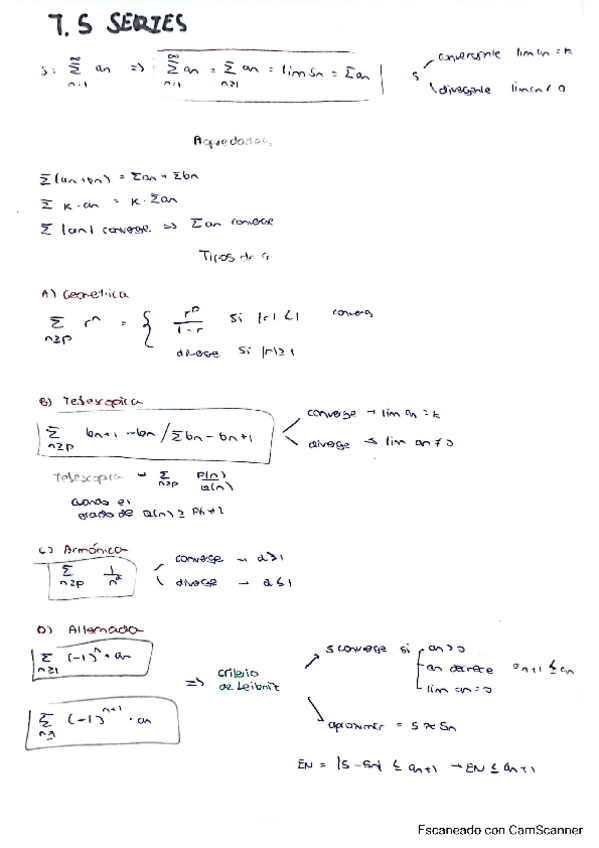 7.5 SERIES
S: ∞ Σ n=1 an => ∞ Σ n=1 an = Σ n≥1 an = lim Sn = Σan
S
convergente lim an = k
divergente lim an ≠ 0
Σ(an+bn) = Σan + Σbn
Σ k·an = k·Σan
Σ |an| converge => Σan converge
Tipos de
A) Geometrica
Σ n≥p r^n = { r^p / 1-r si |r|<1
diverge si |r|≥1
B) Telescopica
Σ n≥p bn+1 - bn / Σbn - bn+1
converge → lim an = k
diverge lim an ≠ 0
Telescopica → Σ n≥p P(n) / Q(n)
cuando el
grado de Q(n) ≥
C) Armónica
Σ n≥p 1 / n^α
converge → α>1
diverge → α≤1
D) Alternada
Σ n≥1 (-1)^n · an
Σ (-1)^n+1 · an
=> criterio
de Leibnit
S converge si
an>0
an decrece an+1 ≤ an
lim an=0
aproximar = S ≈ Sn
EN = |S - Sn| ≤ an+1 → EN ≤ an+1
Escaneado con CamScanner